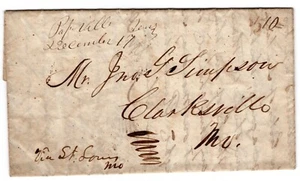 Ville
December 17
10
Mr. Jno. G. Simpson
Clarksville
Mo.
Via St. Louis
Mo